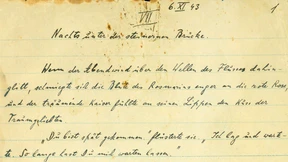 6. XI 43
1
VII
Nachts unter der steinernen Brücke.
Wenn der Abendwind über den Wellen des Flusses dahin-
glitt, schmiegte sich die Blüte des Rosmarins enger an die rote Rose,
und der träumende Kaiser fühlte an seinen Lippen den Kuss der
Traumgeliebten.
„Du bist spät gekommen“ flüsterte sie. „Ich lag und warte-
te. So lange lässt Du mich warten lassen.“